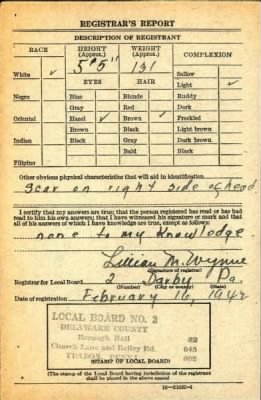 REGISTRAR'S REPORT
DESCRIPTION OF REGISTRANT
RACE HEIGHT (Approx.) WEIGHT (Approx.) COMPLEXION
5'5" 131
White ✓ Sallow
EYES HAIR Light ✓
Negro Blue Blonde Ruddy
Gray Red Dark
Oriental Hazel ✓ Brown ✓ Freckled
Brown Black Light brown
Indian Black Gray Dark brown
Bald Black
Filipino
Other obvious physical characteristics that will aid in identification
Scar on right side of head
I certify that my answers are true; that the person registered has read or has had
read to him his own answers; that I have witnessed his signature or mark and that
all of his answers of which I have knowledge are true, except as follows:
none to my knowledge
Lillian M. Wynne
(Signature of registrar)
Registrar for Local Board 2 Darby Pa.
Date of registration February 16, 1942
LOCAL BOARD NO. 2
DELAWARE COUNTY
Borough Hall
Church Lane and Bailey Rd.
YEADON, PENNA.
(STAMP OF LOCAL BOARD)
(The stamp of the Local Board having jurisdiction of the registrant
shall be placed in the above space)